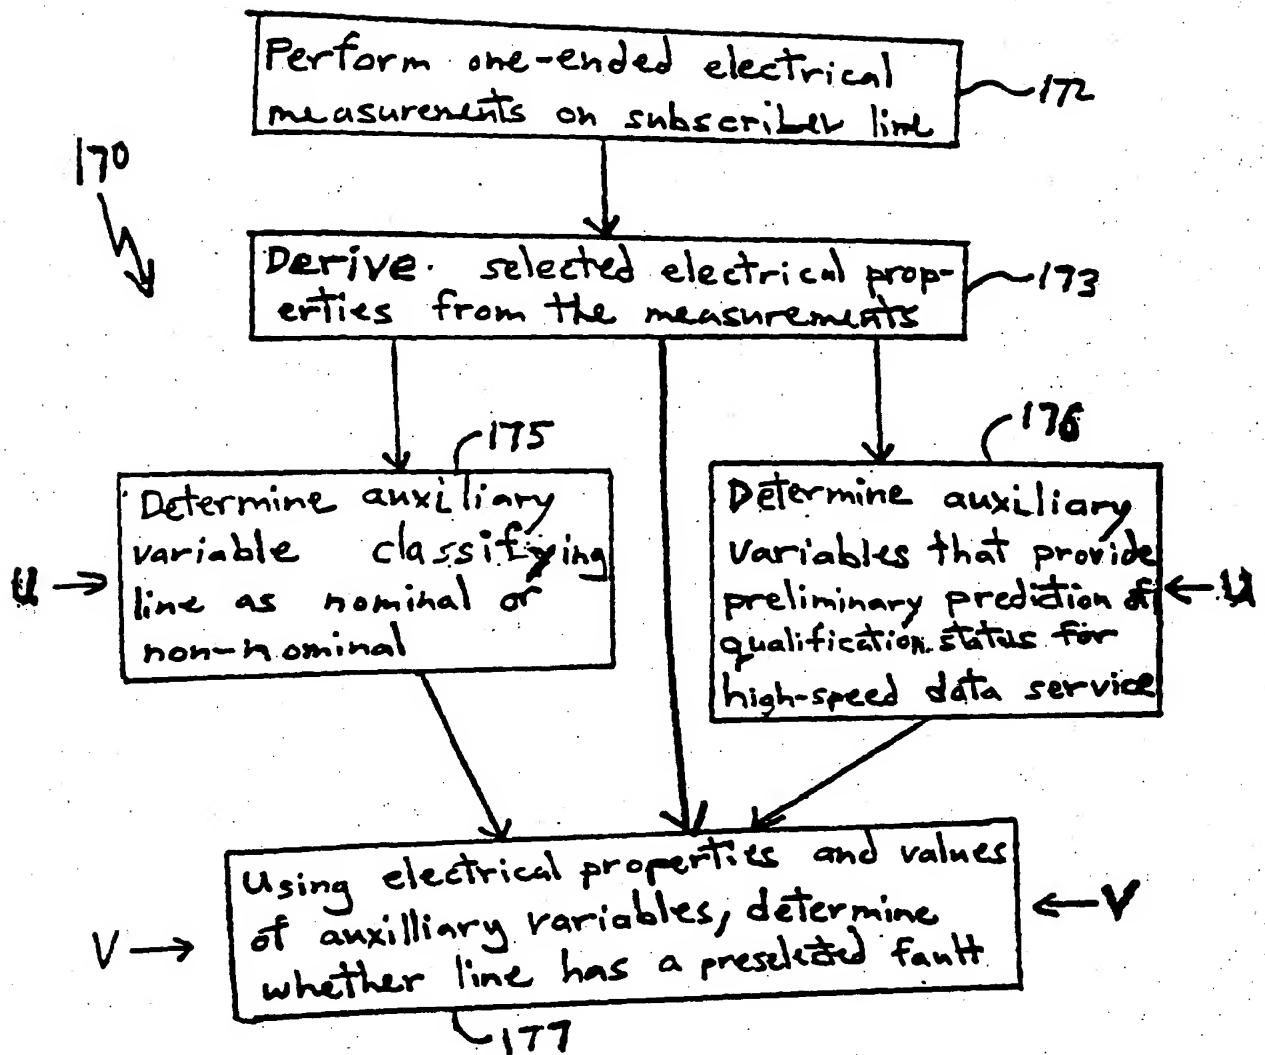 Perform one-ended electrical
measurements on subscriber line
172
170
Derive selected electrical prop-
erties from the measurements
173
175
176
Determine auxiliary
variable classifying
line as nominal or
non-nominal
u
Determine auxiliary
variables that provide
preliminary prediction of
qualification status for
high-speed data service
u
Using electrical properties and values
of auxilliary variables, determine
whether line has a preselected fault
V
V
177